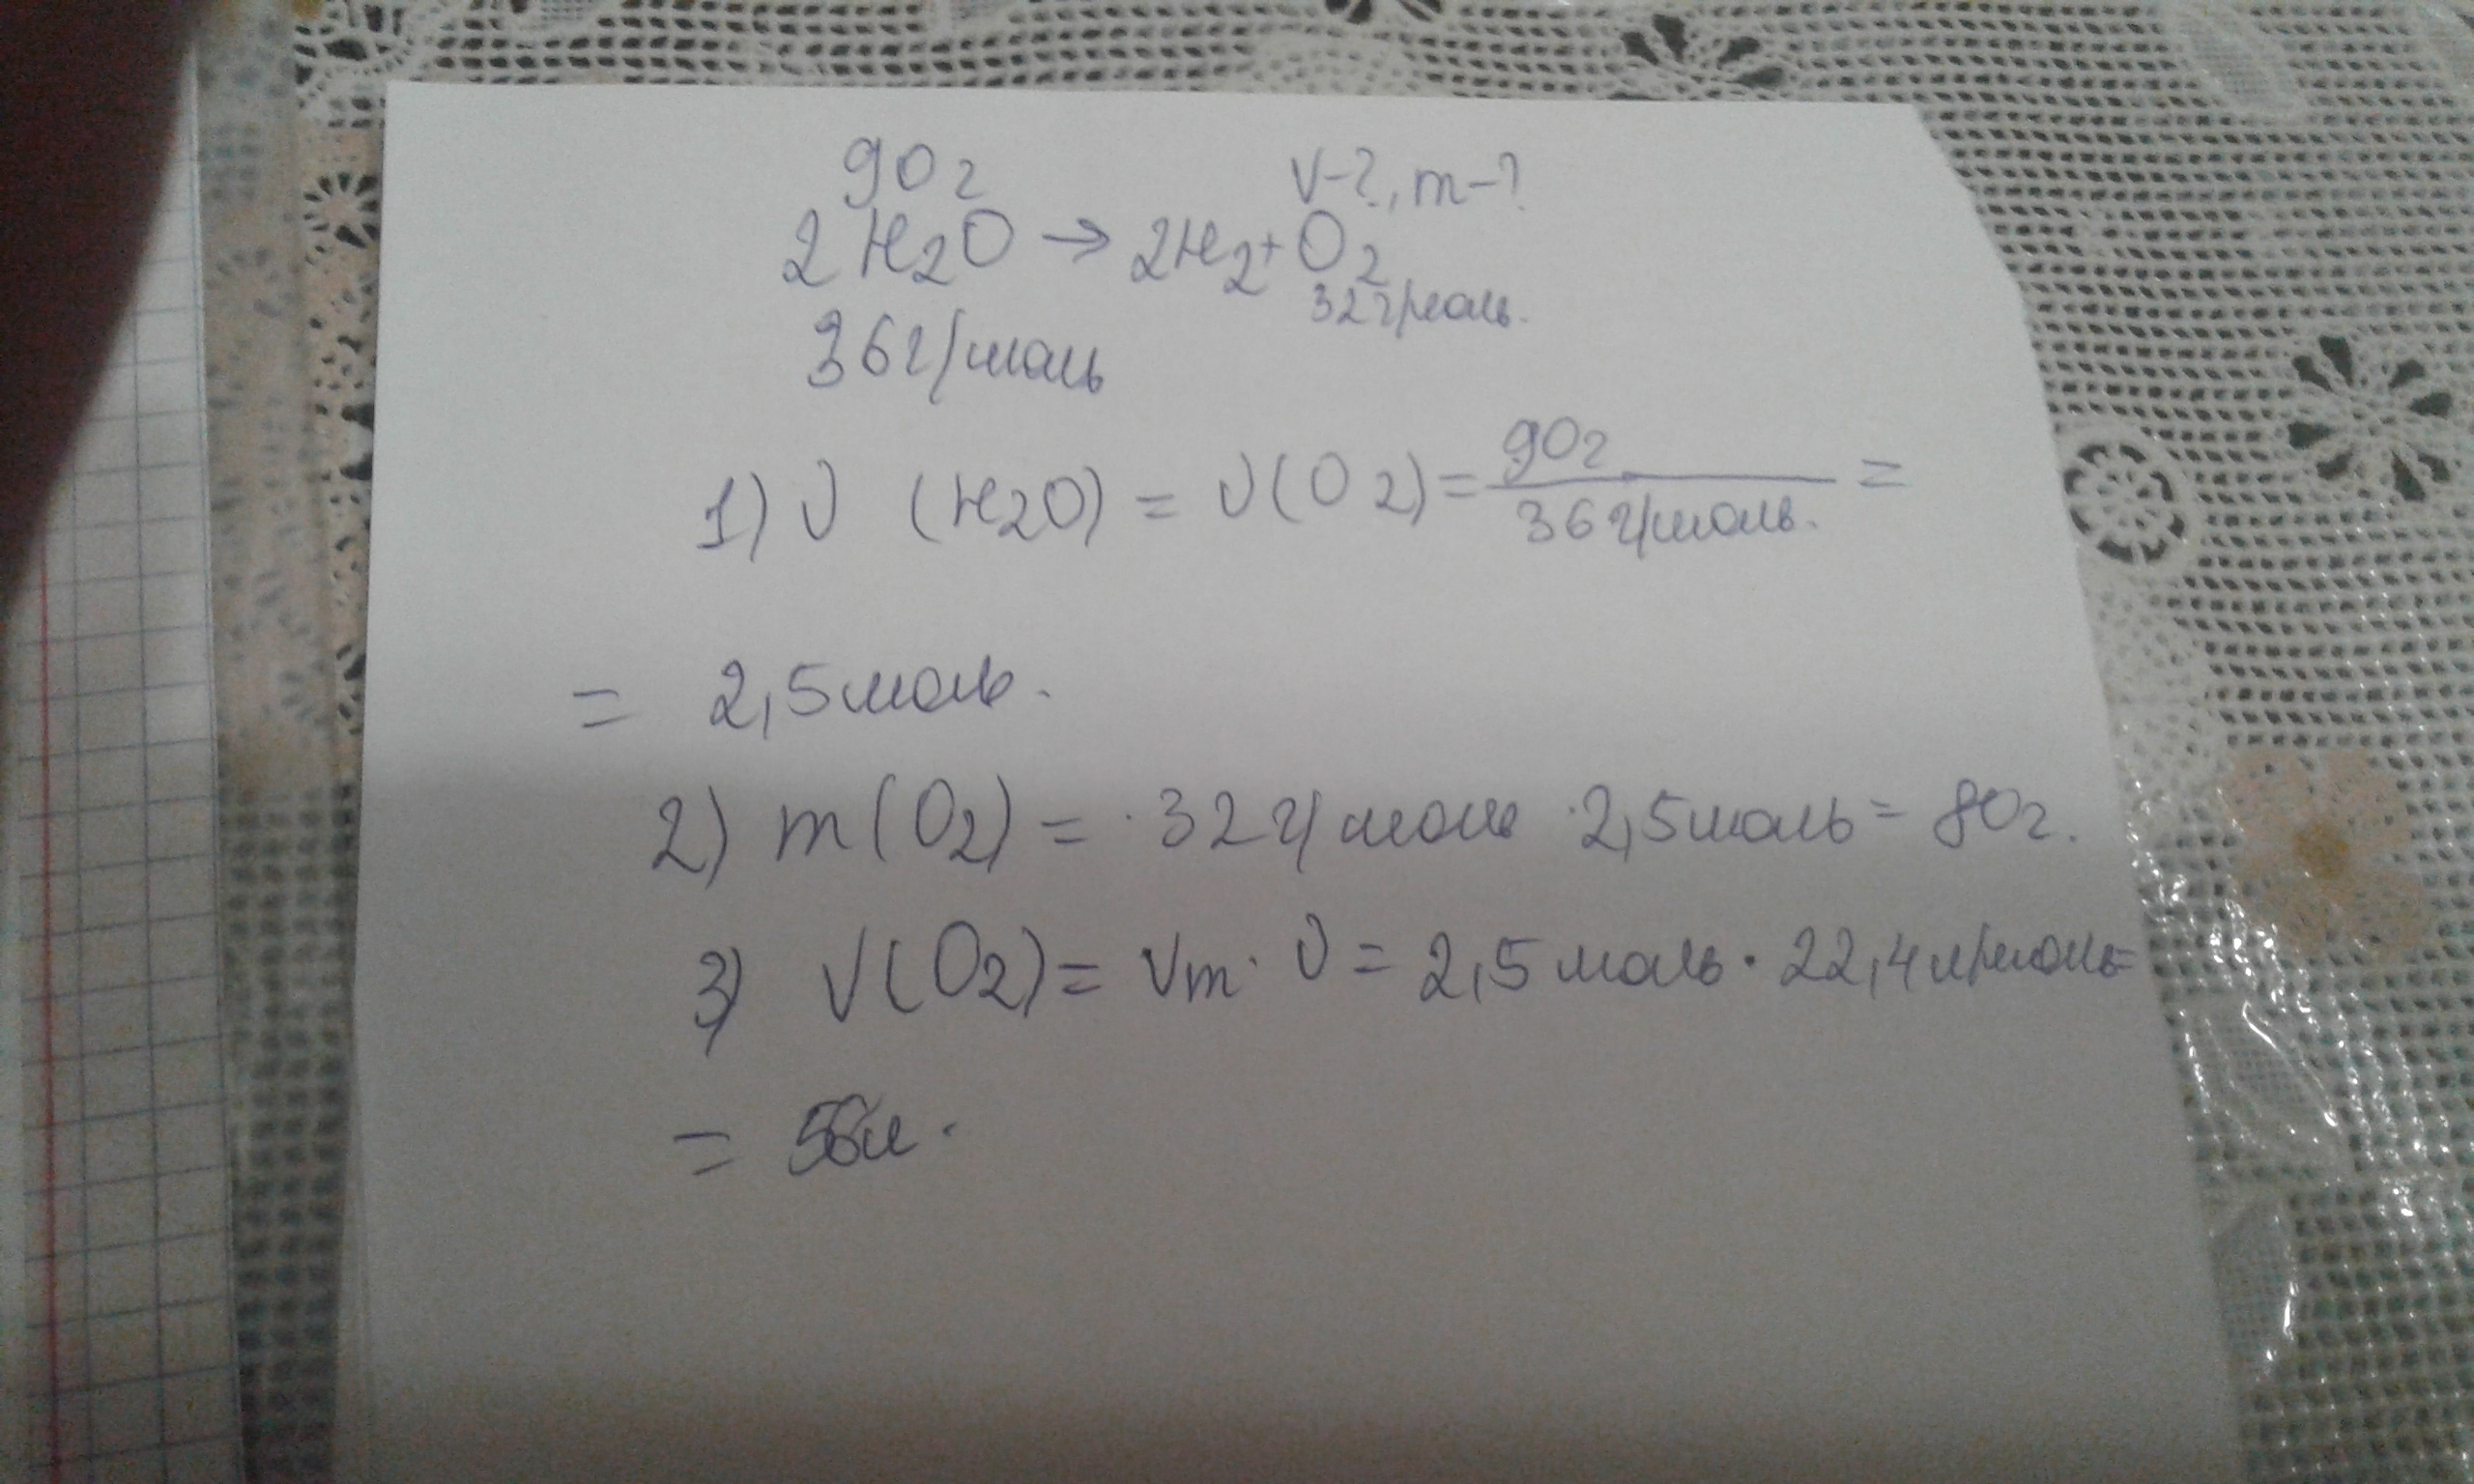 90г V-?, m-?
2H2O → 2H2 + O2
32г/моль.
36г/моль
1) ν (H2O) = ν(O2) = 90г / 36г/моль. =
= 2,5моль.
2) m(O2) = · 32г/моль · 2,5моль = 80г.
3) V(O2) = Vm · ν = 2,5моль · 22,4л/моль =
= 56л.